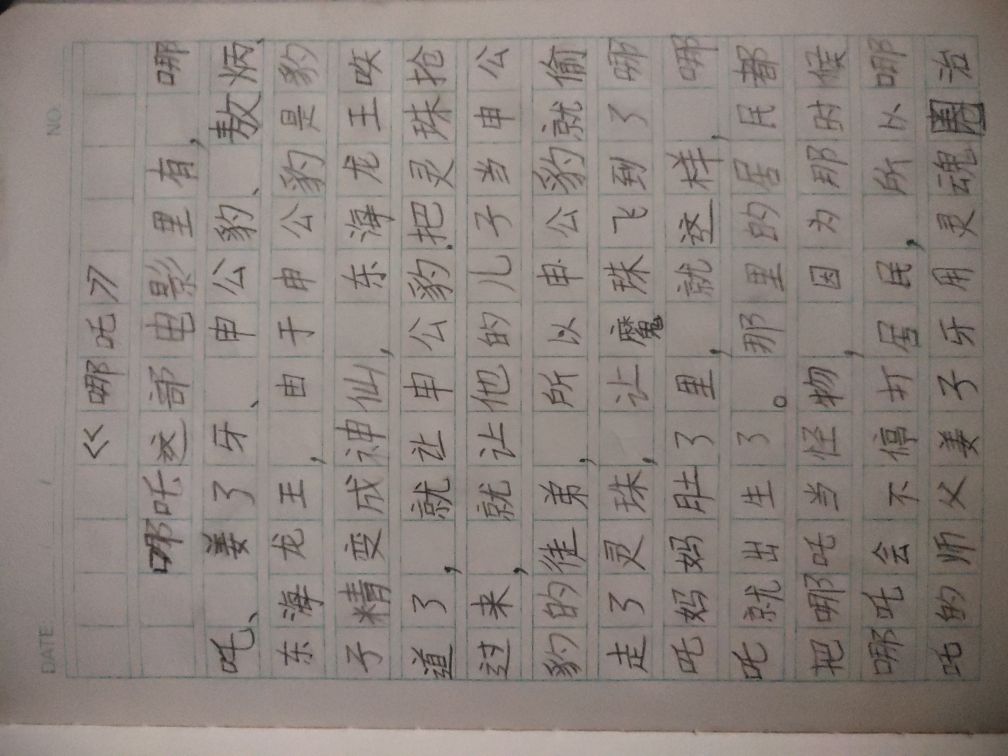 NO.
DATE: / /
《哪吒》
哪吒这部电影里有，哪
吒、姜了牙、申公豹、敖炳、
东海龙王，由于申公豹是豹
子精变成神仙，东海龙王
道了，就让申公豹把灵珠抢
过来，就让他的儿子当申公
豹的徒弟，所以申公豹就偷
走了灵珠，让魔珠飞到了哪
吒妈妈肚了里，就这样，哪
吒就出生了。那里的居民都
把哪吒当怪物，因为那时候
哪吒会不停打居民，所以哪
吒的师父姜子牙用灵魂圈治